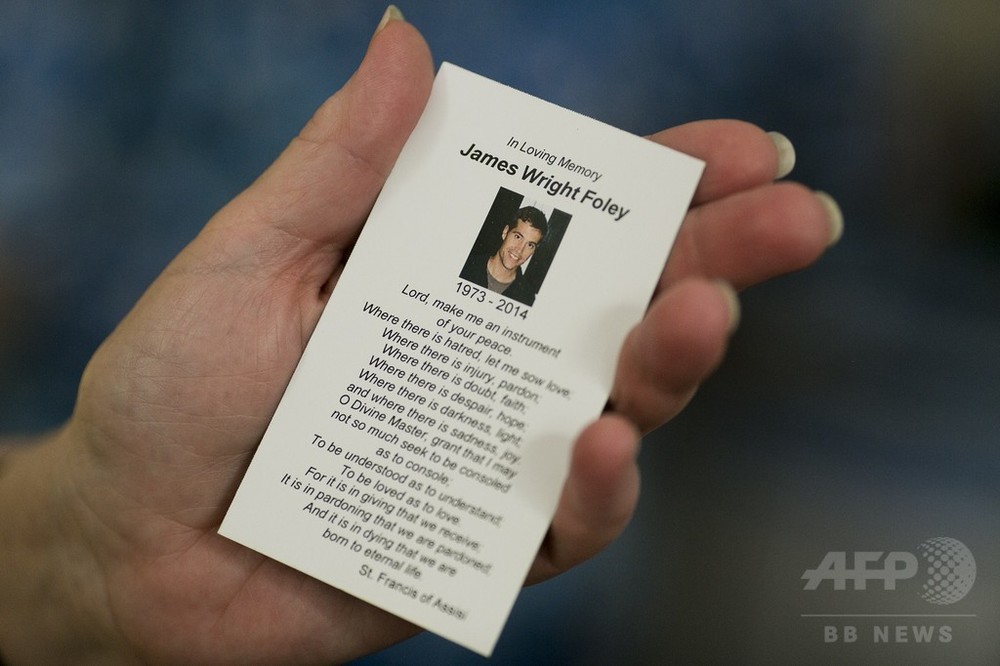 In Loving Memory
James Wright Foley
1973 - 2014
Lord, make me an instrument
of your peace.
Where there is hatred, let me sow love;
Where there is injury, pardon;
Where there is doubt, faith;
Where there is despair, hope;
Where there is darkness, light,
and where there is sadness, joy.
O Divine Master, grant that I may
not so much seek to be consoled
as to console;
To be understood as to understand;
To be loved as to love.
For it is in giving that we receive;
It is in pardoning that we are pardoned;
And it is in dying that we are
born to eternal life.
St. Francis of Assisi
AFP
BB NEWS